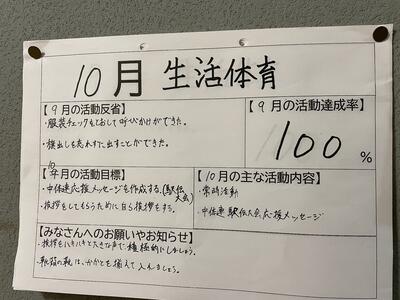 10月 生活体育
【9月の活動反省】
・服装チェックをとおして呼びかけができた。
・旗出しも忘れずに出すことができた。
【9月の活動達成率】
100%
10
【年月の活動目標】
・中体連応援メッセージを作成する。(駅伝大会)
・挨拶をしてもらうために自ら挨拶をする。
【10月の主な活動内容】
・常時活動
・中体連駅伝大会応援メッセージ
【みなさんへのお願いやお知らせ】
・挨拶をハキハキと大きな声で積極的にしましょう。
・靴箱の靴は、かかとを揃えて入れましょう。